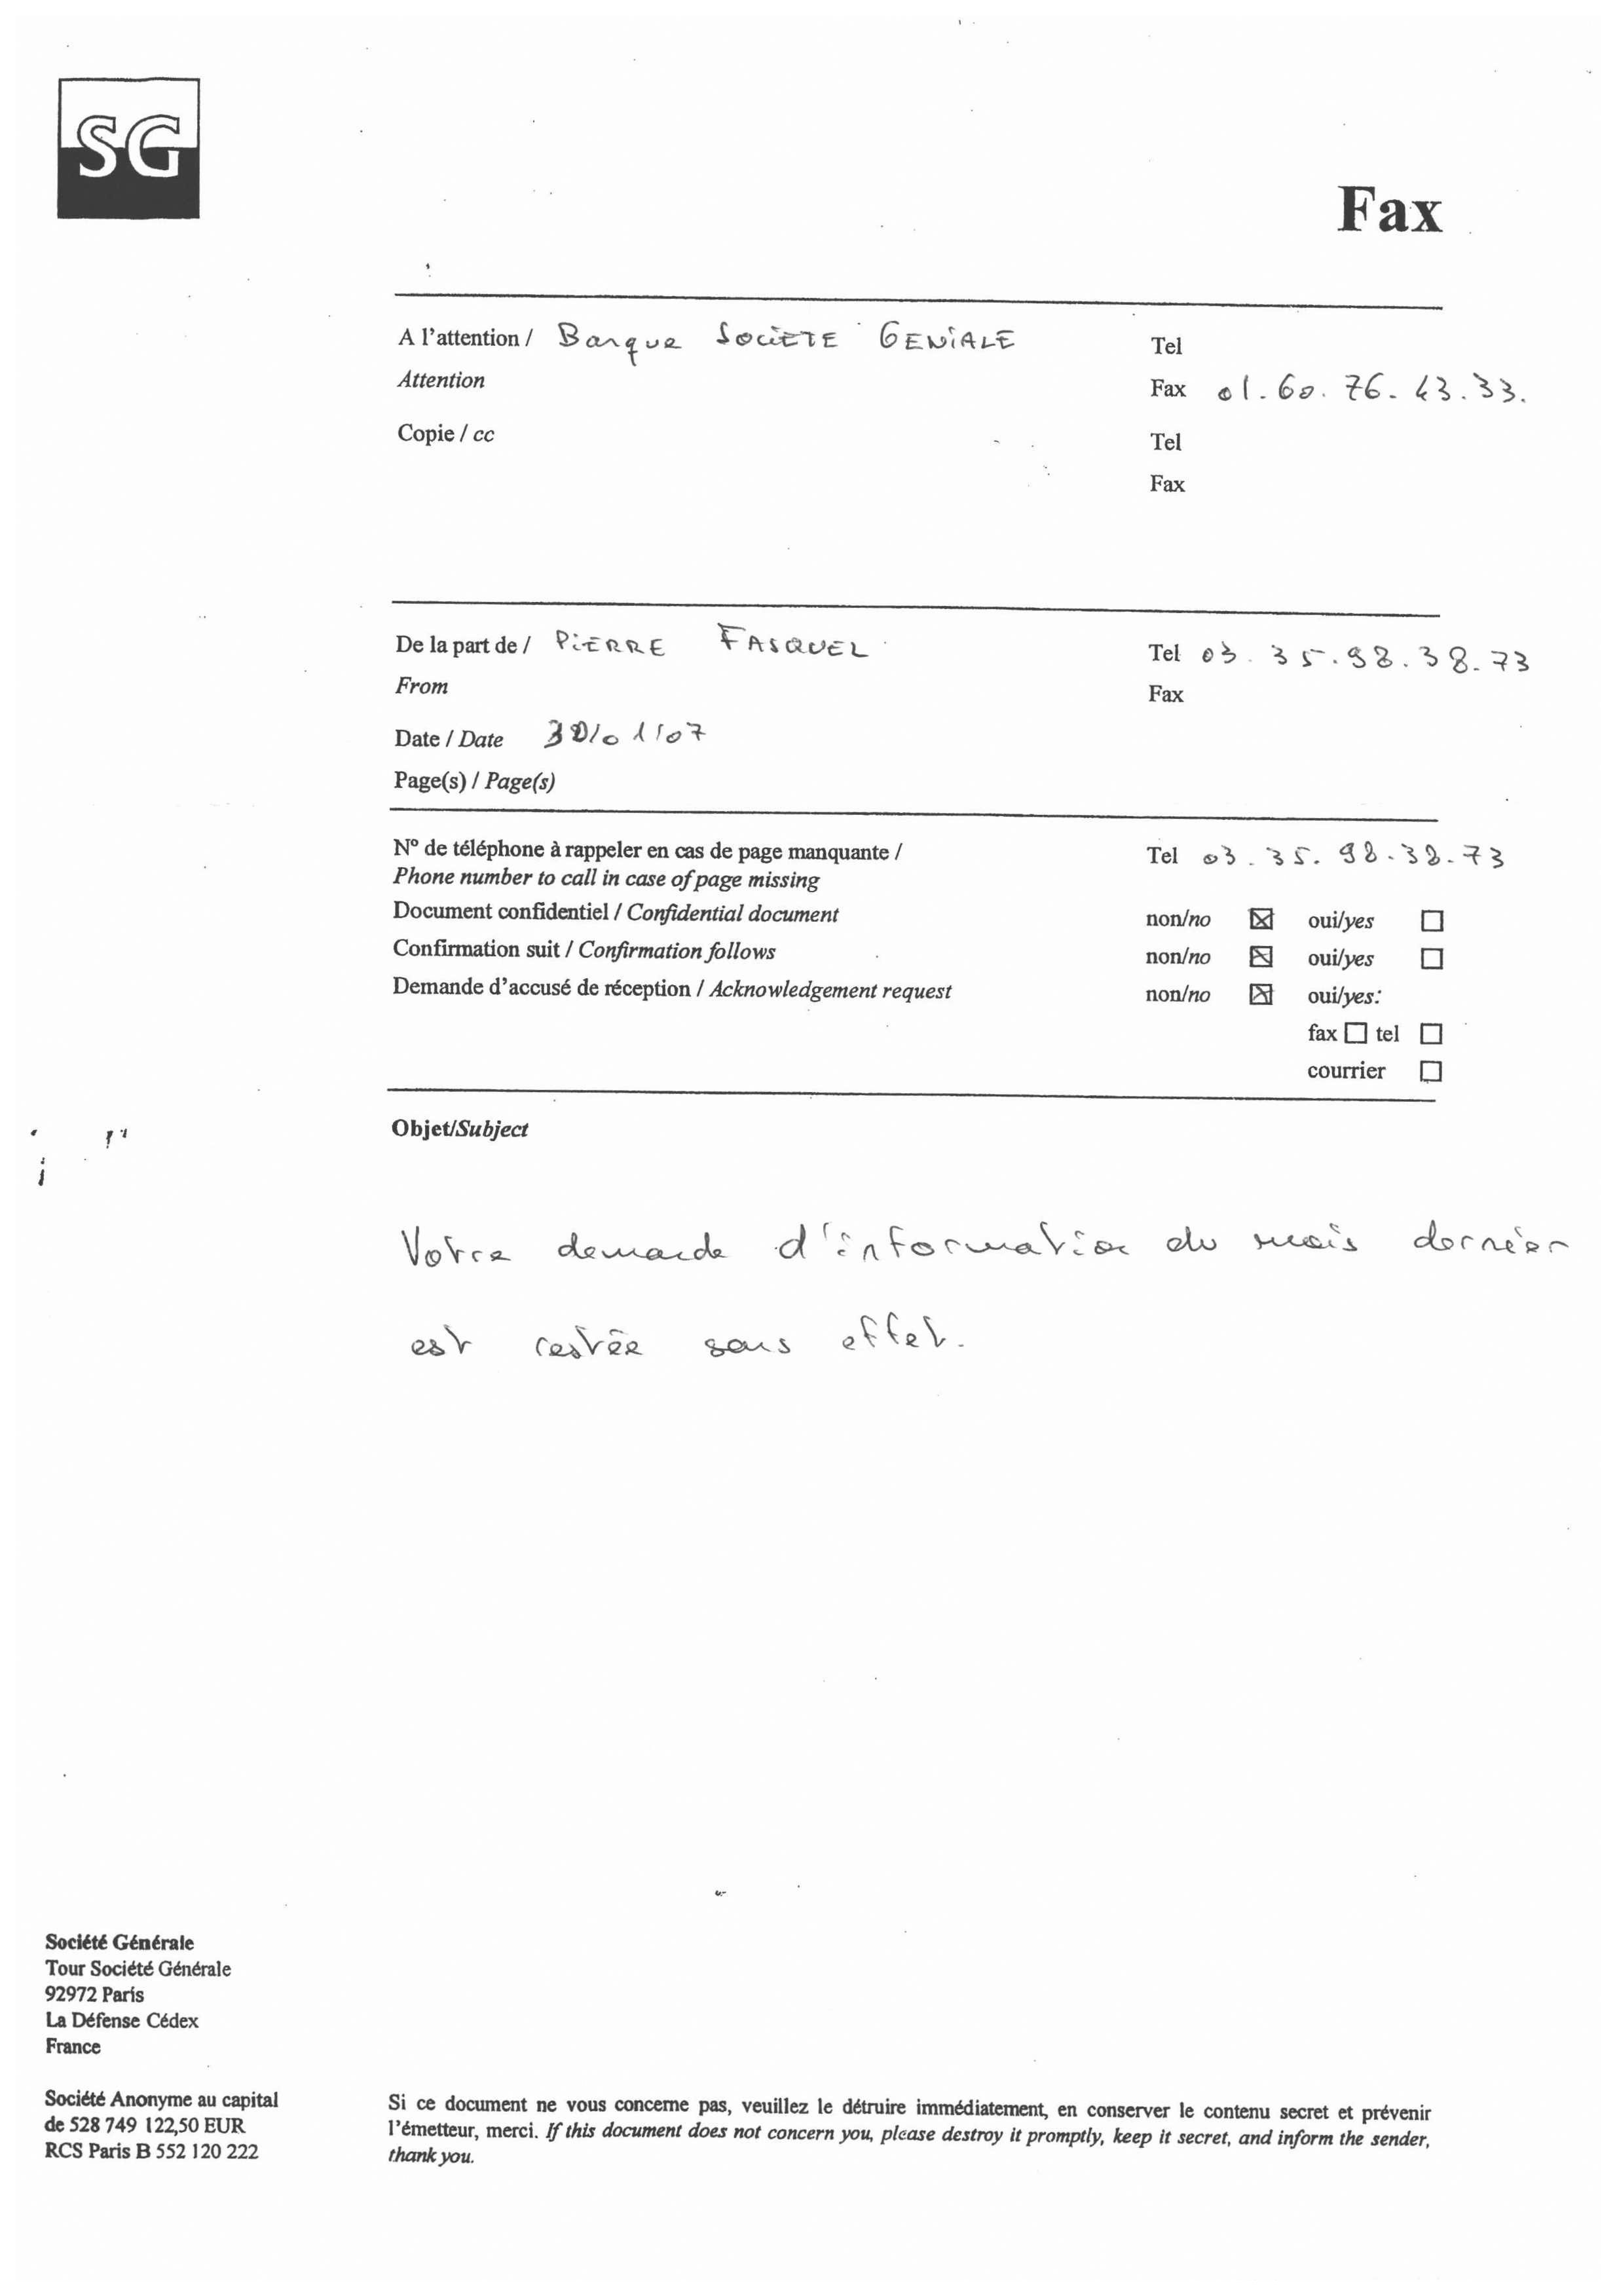 SG
Fax
A l'attention / Banque SociETE GENiALE
Tel
Attention
Fax 01.60.76.43.33.
Copie / cc
Tel
Fax
De la part de / PiERRE FASQUEL
Tel 03.35.98.38.73
From
Fax
Date / Date 30/01/07
Page(s) / Page(s)
N° de téléphone à rappeler en cas de page manquante /
Tel 03.35.98.38.73
Phone number to call in case of page missing
Document confidentiel / Confidential document non/no ☒ oui/yes ☐
Confirmation suit / Confirmation follows non/no ☒ oui/yes ☐
Demande d'accusé de réception / Acknowledgement request non/no ☒ oui/yes:
fax ☐ tel ☐
courrier ☐
Objet/Subject
Votre demande d'information du mois dernier
est restée sans effet.
Société Générale
Tour Société Générale
92972 Paris
La Défense Cédex
France
Société Anonyme au capital
de 528 749 122,50 EUR
RCS Paris B 552 120 222
Si ce document ne vous concerne pas, veuillez le détruire immédiatement, en conserver le contenu secret et prévenir
l'émetteur, merci. If this document does not concern you, please destroy it promptly, keep it secret, and inform the sender,
thank you.